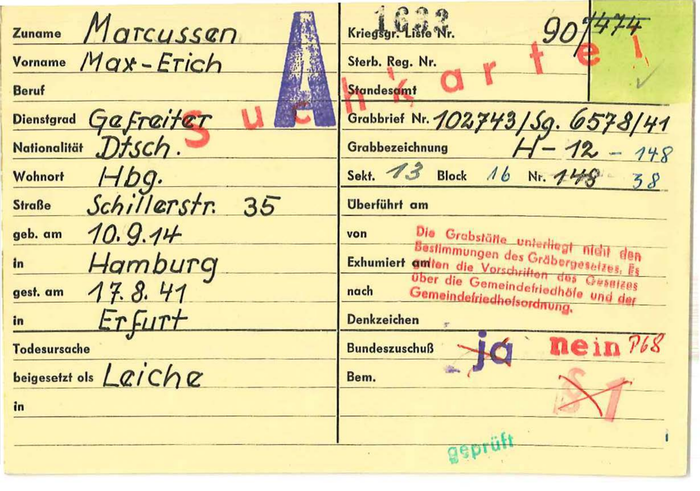 Zuname Marcussen
Vorname Max-Erich
Beruf
Dienstgrad Gefreiter
Nationalität Dtsch.
Wohnort Hbg.
Straße Schillerstr. 35
geb. am 10.9.14
in Hamburg
gest. am 17.8.41
in Erfurt
Todesursache
beigesetzt als Leiche
in
A
Suchkartei
1632
Kriegsgr. Liste Nr. 90/474
Sterb. Reg. Nr.
Standesamt
Grabbrief Nr. 102743/Sg. 6578/41
Grabbezeichnung H-12-148
Sekt. 13 Block 16 Nr. 148 38
Überführt am
von
Exhumiert am
nach
Die Grabstätte unterliegt nicht den
Bestimmungen des Gräbergesetzes. Es
gelten die Vorschriften des Gesetzes
über die Gemeindefriedhöfe und der
Gemeindefriedhofsordnung.
Denkzeichen
Bundeszuschuß ja nein P68
Bem. § 1
geprüft